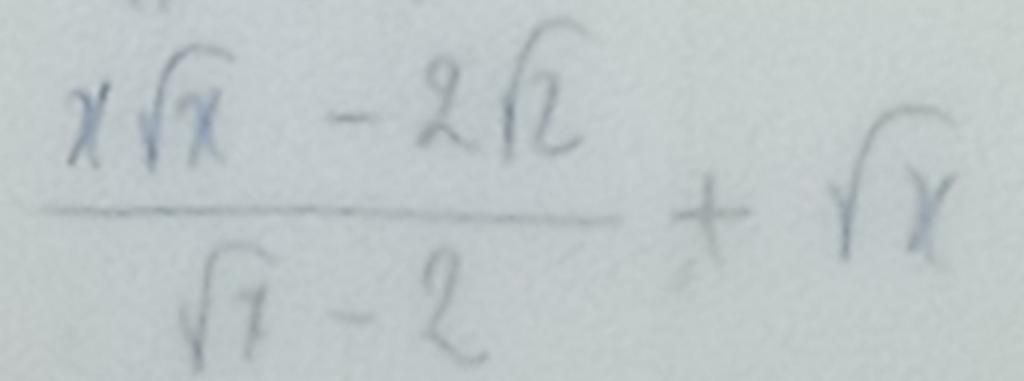 \frac{x\sqrt{x} - 2\sqrt{2}}{\sqrt{x} - 2} + \sqrt{x}